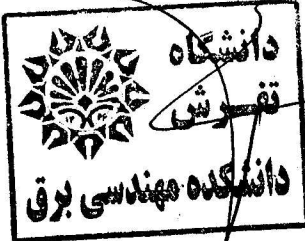 دانشگاه
تفرش
دانشکده مهندسی برق